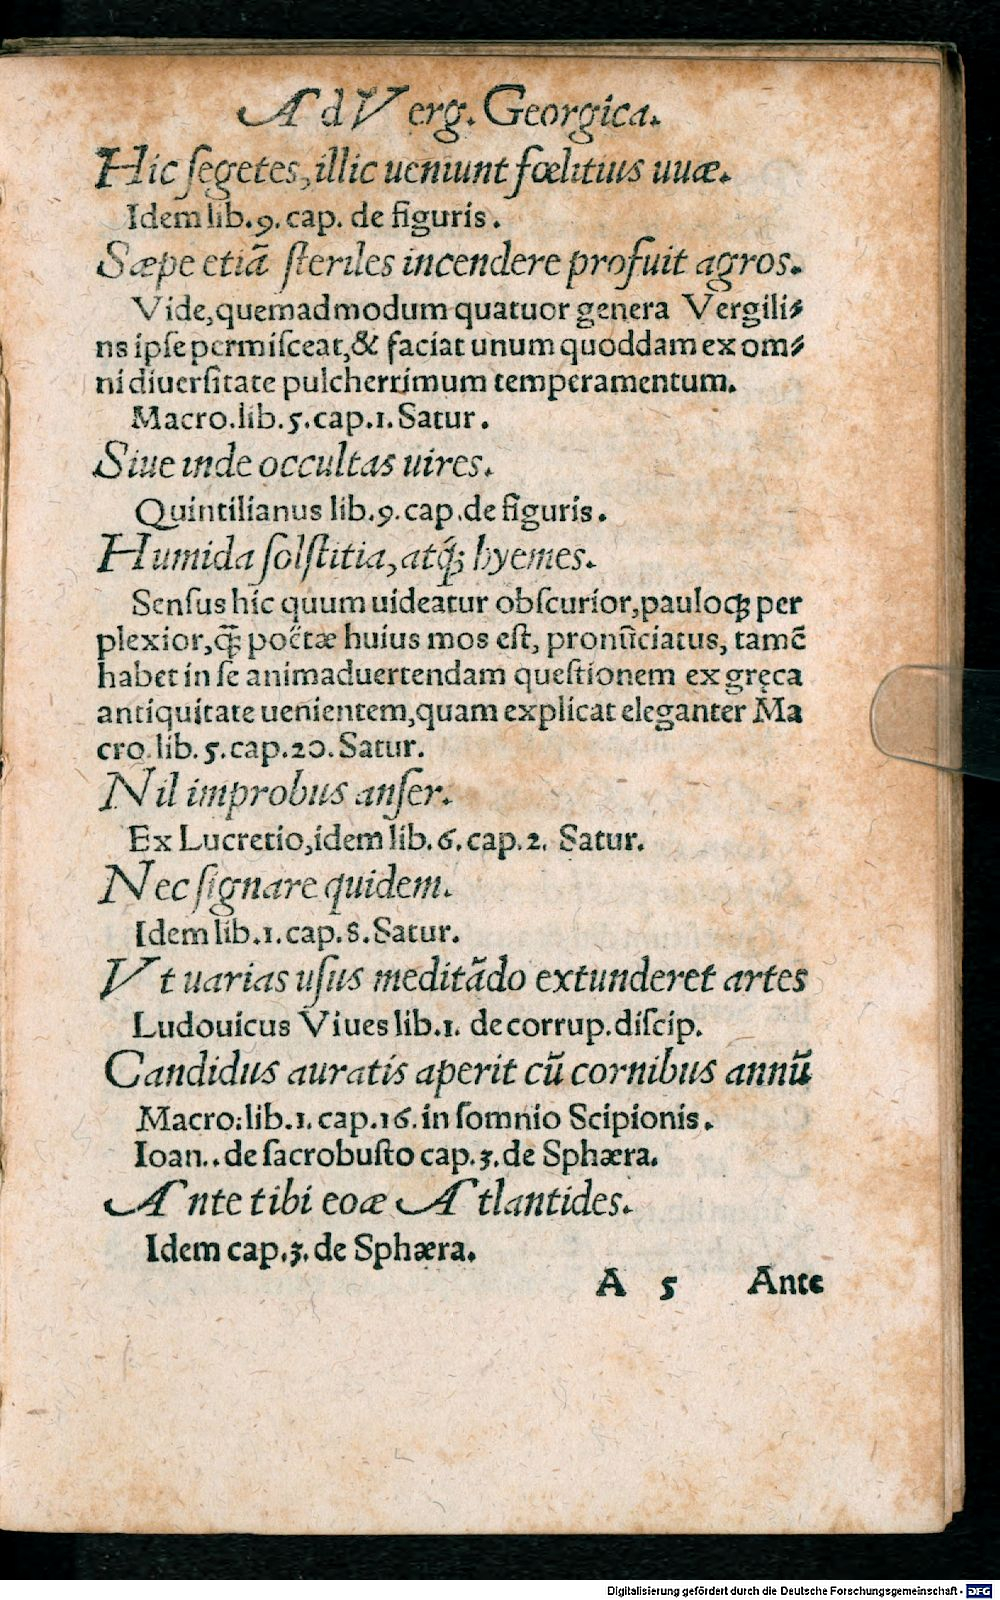 Ad Verg. Georgica.
Hic ſegetes, illic ueniunt fœlitius uuæ.
Idem lib. 9. cap. de figuris.
Sæpe etiã ſteriles incendere profuit agros.
Vide, quemadmodum quatuor genera Vergili⸗
ns ipſe permiſceat, & faciat unum quoddam ex om⸗
ni diuerſitate pulcherrimum temperamentum.
Macro. lib. 5. cap. 1. Satur.
Siue inde occultas uires.
Quintilianus lib. 9. cap. de figuris.
Humida ſolſtitia, atq́; hyemes.
Senſus hic quum uideatur obſcurior, pauloq; per
plexior, q̃ poëtæ huius mos eſt, pronũciatus, tamẽ
habet in ſe animaduertendam queſtionem ex gręca
antiquitate uenientem, quam explicat eleganter Ma
cro. lib. 5. cap. 20. Satur.
Nil improbus anſer.
Ex Lucretio, idem lib. 6. cap. 2. Satur.
Nec ſignare quidem.
Idem lib. 1. cap. 8. Satur.
Vt uarias uſus meditãdo extunderet artes
Ludouicus Viues lib. 1. de corrup. diſcip.
Candidus auratis aperit cũ cornibus annũ
Macro: lib. 1. cap. 16. in ſomnio Scipionis.
Ioan.. de ſacrobuſto cap. 3. de Sphæra.
Ante tibi eoæ Atlantides.
Idem cap. 3. de Sphæra.
A 5 Ante
Digitalisierung gefördert durch die Deutsche Forschungsgemeinschaft - DFG